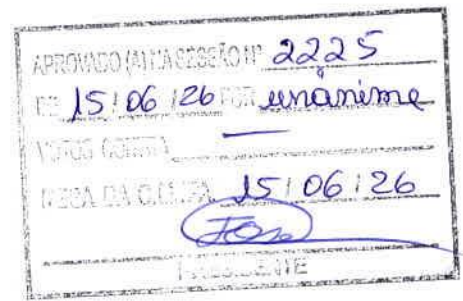 APROVADO (A) NA SESSÃO Nº 2225
DE 15/06/26 POR unânime
VOTOS CONTRA —
MESA DA C.M. 15/06/26
PRESIDENTE